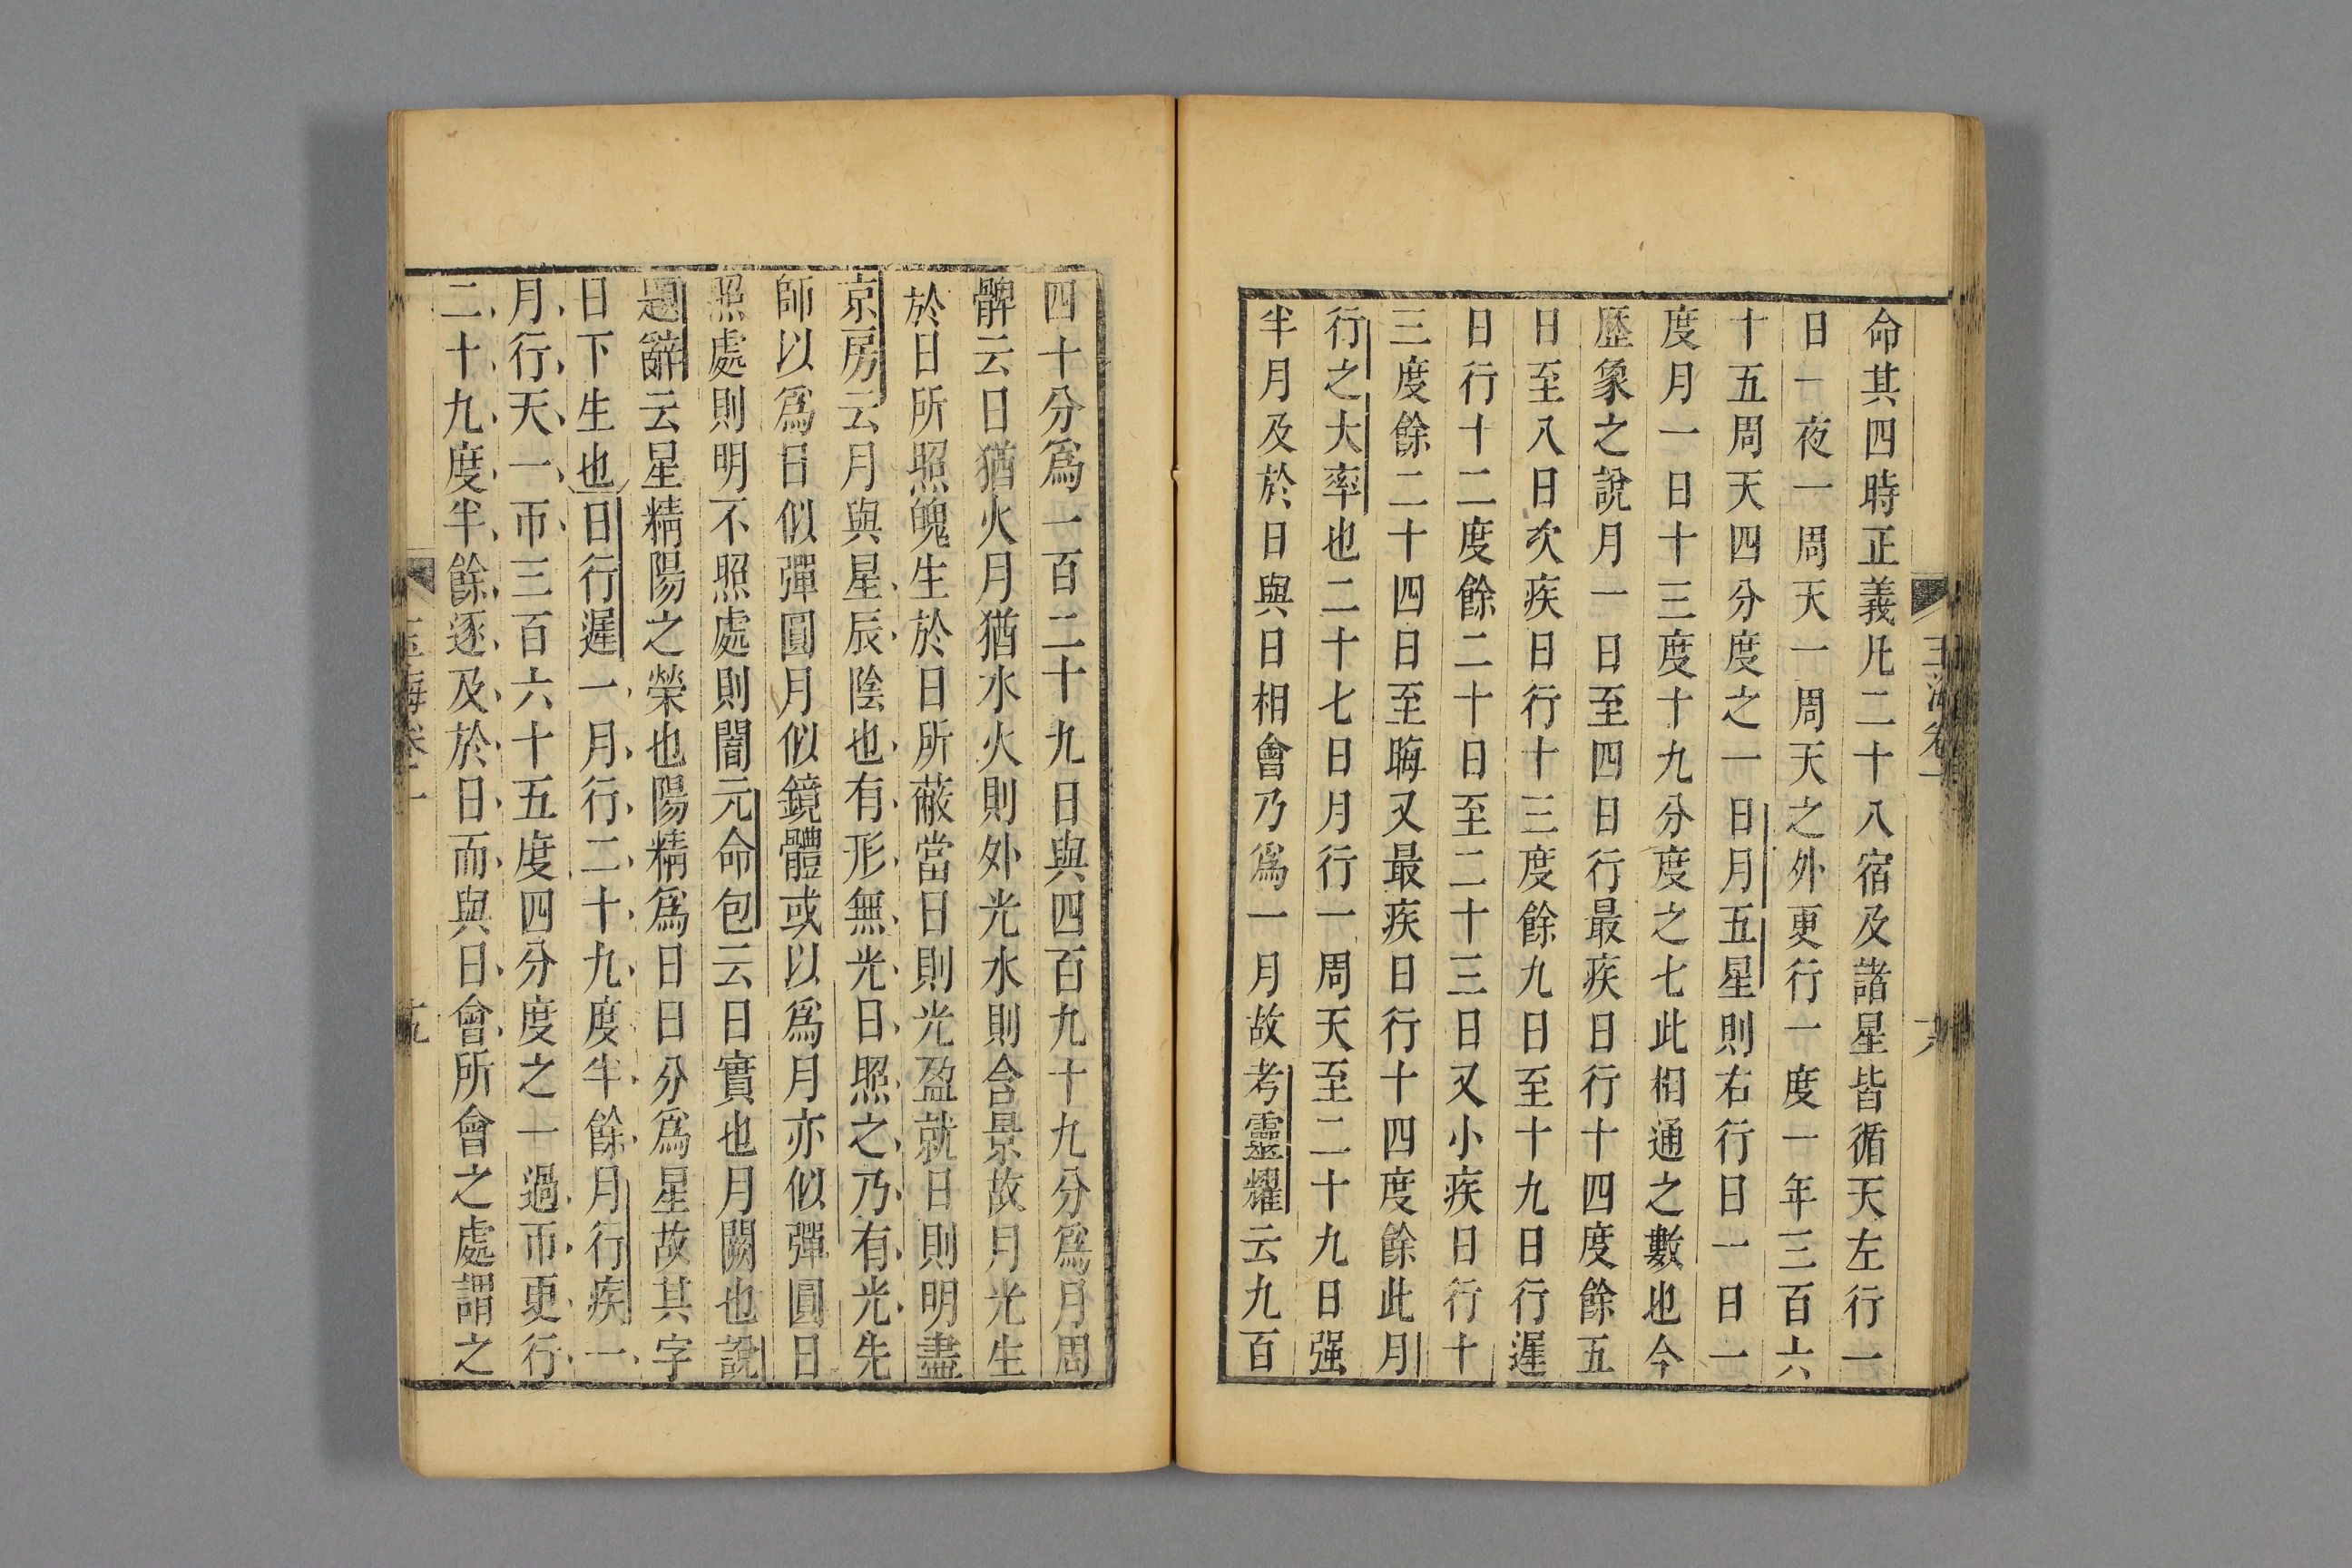 命其四時正義凡二十八宿及諸星皆循天左行一
日一夜一周天一周天之外更行一度一年三百六
十五周天四分度之一日月五星則右行日一日一
度月一日十三度十九分度之七此相通之數也今
歷象之說月一日至四日行最疾日行十四度餘五
日至八日次疾日行十三度餘九日至十九日行遲
日行十二度餘二十日至二十三日又小疾日行十
三度餘二十四日至晦又最疾日行十四度餘此月
行之大率也二十七日月行一周天至二十九日强
半月及於日與日相會乃爲一月故考靈耀云九百
四十分爲一百二十九日與四百九十九分爲月周
髀云日猶火月猶水火則外光水則含景故月光生
於日所照魄生於日所蔽當日則光盈就日則明盡
京房云月與星辰陰也有形無光日照之乃有光先
師以爲日似彈圓月似鏡體或以爲月亦似彈圓日
照處則明不照處則闇元命包云日實也月闕也說
題辭云星精陽之榮也陽精爲日日分爲星故其字
日下生也日行遲一月行二十九度半餘月行疾一
月行天一帀三百六十五度四分度之一過帀更行
二十九度半餘逐及於日而與日會所會之處謂之